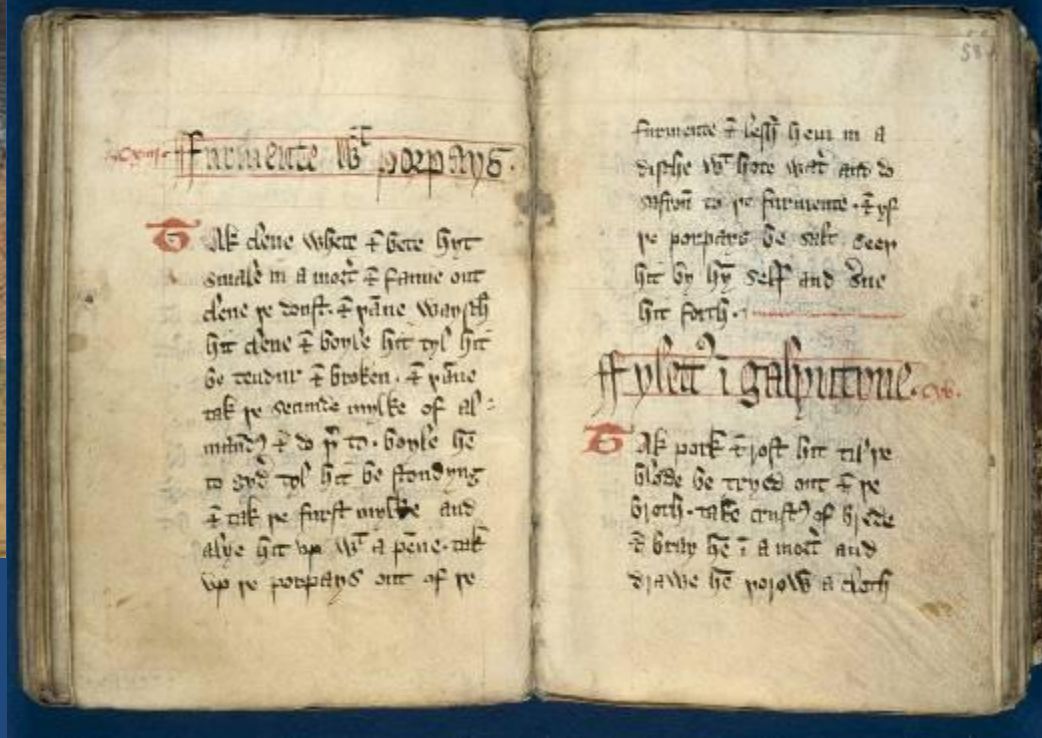 ffurmente wt porpays.
Tak clene whete & bete hyt
smale in a mort & fanne out
clene þe doust. & þane waysch
hit clene & boyle hit tyl hit
be tendur & broken. & þane
tak þe secunde mylke of al-
mandes & do þr to. boyle he
to gyd tyl hit be stondyng
& tak þe furst mylke and
alye hit up wt a pene. tak
up þe porpays out of þe
58
furmente & lesch hem in a
dische wt hote wat and do
safron to þe furmente. & yf
þe porpays be salt. seeþ
hit by hy self and sue
hit forth.
ffylett i galyntyne. cxv.
Tak pork & rost hit til þe
blode be tryed out & þe
broth. take crustes of brede
& bray he i a mort and
drawe he þorow a cloth